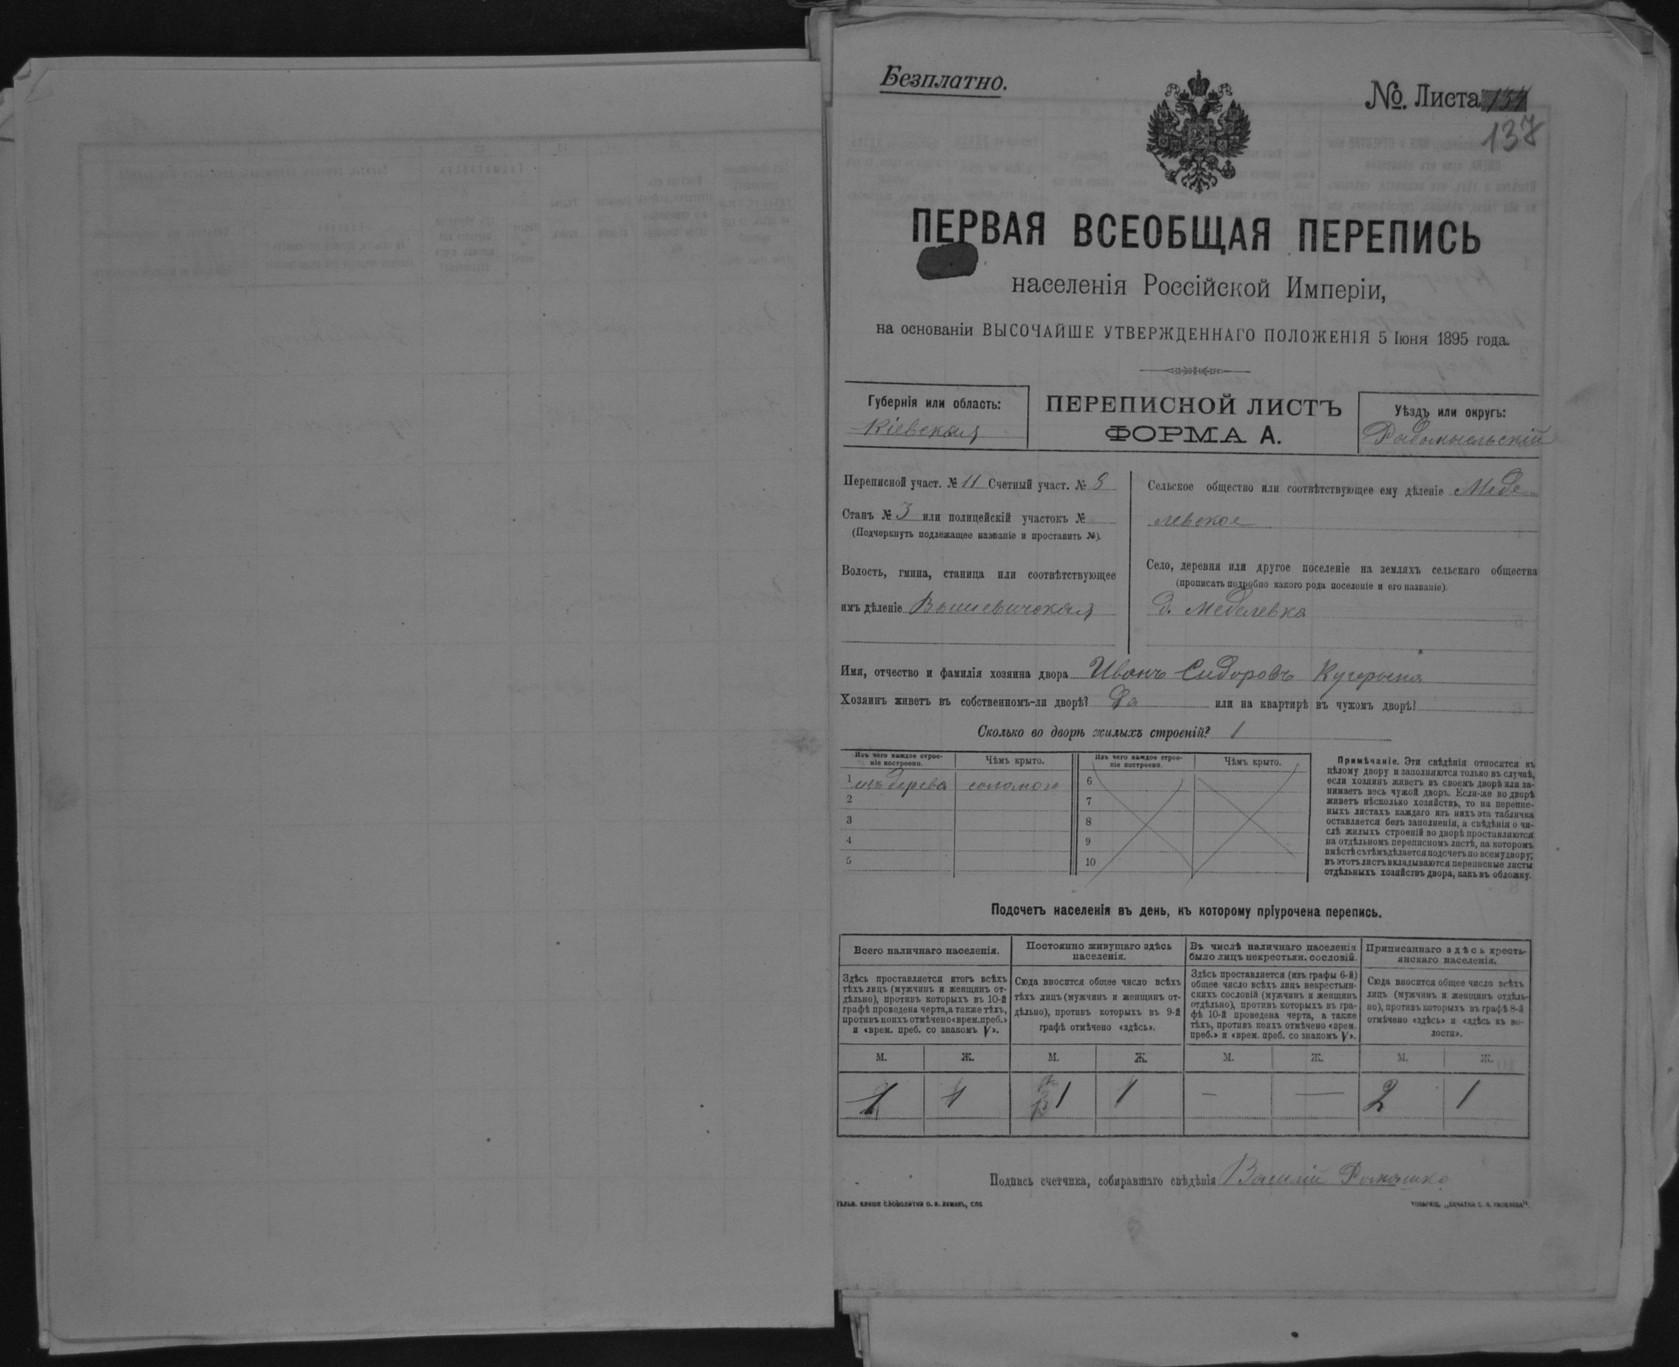 Безплатно.
№. Листа
137
ПЕРВАЯ ВСЕОБЩАЯ ПЕРЕПИСЬ
населенія Россійской Имперіи,
на основаніи ВЫСОЧАЙШЕ УТВЕРЖДЕННАГО ПОЛОЖЕНІЯ 5 Іюня 1895 года.
Губернія или область:
Кіевская
ПЕРЕПИСНОЙ ЛИСТЪ
ФОРМА А.
Уѣздъ или округъ:
Радомысльскій
Переписной участ. № 11 Счетный участ. № 8
Станъ № 3 или полицейскій участокъ №
(Подчеркнуть подлежащее названіе и проставить №).
Волость, гмина, станица или соотвѣтствующее
имъ дѣленіе Вышевичская
Сельское общество или соотвѣтствующее ему дѣленіе Меде-
левское
Село, деревня или другое поселеніе на земляхъ сельскаго общества
(прописать подробно какого рода поселеніе и его названіе).
д. Меделевка
Имя, отчество и фамилія хозяина двора Иванъ Сидоровъ
Хозяинъ живетъ въ собственномъ-ли дворѣ? Да или на квартирѣ въ чужомъ дворѣ?
Сколько во дворѣ жилыхъ строеній? 1
Изъ чего каждое строе-
ніе построено.
Чѣмъ крыто.
Изъ чего каждое строе-
ніе построено.
Чѣмъ крыто.
1 изъ дерева соломою
2
3
4
5
6
7
8
9
10
Примѣчаніе. Эти свѣдѣнія относятся къ
цѣлому двору и заполняются только въ случаѣ,
если хозяинъ живетъ въ своемъ дворѣ или за-
нимаетъ весь чужой дворъ. Если-же во дворѣ
живетъ нѣсколько хозяйствъ, то на перепис-
ныхъ листахъ каждаго изъ нихъ эта табличка
оставляется безъ заполненія, а свѣдѣнія о чи-
слѣ жилыхъ строеній во дворѣ проставляются
на отдѣльномъ переписномъ листѣ, на которомъ
вмѣстѣ съ тѣмъ дѣлается подсчетъ по всему двору;
въ этотъ листъ вкладываются переписные листы
отдѣльныхъ хозяйствъ двора, какъ въ обложку.
Подсчетъ населенія въ день, къ которому пріурочена перепись.
Всего наличнаго населенія.
Здѣсь проставляется итогъ всѣхъ
тѣхъ лицъ (мужчинъ и женщинъ от-
дѣльно), противъ которыхъ въ 10-й
графѣ проведена черта, а также тѣхъ,
противъ коихъ отмѣчено «врем. преб.»
и «врем. преб. со знакомъ V».
Постоянно живущаго здѣсь
населенія.
Сюда вносится общее число всѣхъ
тѣхъ лицъ (мужчинъ и женщинъ от-
дѣльно), противъ которыхъ въ 9-й
графѣ отмѣчено «здѣсь».
Въ числѣ наличнаго населенія
было лицъ некрестьян. сословій.
Здѣсь проставляется (изъ графы 6-й)
общее число всѣхъ лицъ некрестьян-
скихъ сословій (мужчинъ и женщинъ
отдѣльно), противъ которыхъ въ гра-
фѣ 10-й проведена черта, а также
тѣхъ, противъ коихъ отмѣчено «врем.
преб.» и «врем. преб. со знакомъ V».
Приписаннаго здѣсь кресть-
янскаго населенія.
Сюда вносится общее число всѣхъ
лицъ (мужчинъ и женщинъ отдѣль-
но), противъ которыхъ въ графѣ 8-й
отмѣчено «здѣсь» и «здѣсь въ во-
лости».
М. Ж. М. Ж. М. Ж. М. Ж.
1 1 1 1 — — 2 1
Подпись счетчика, собиравшаго свѣдѣнія Василій